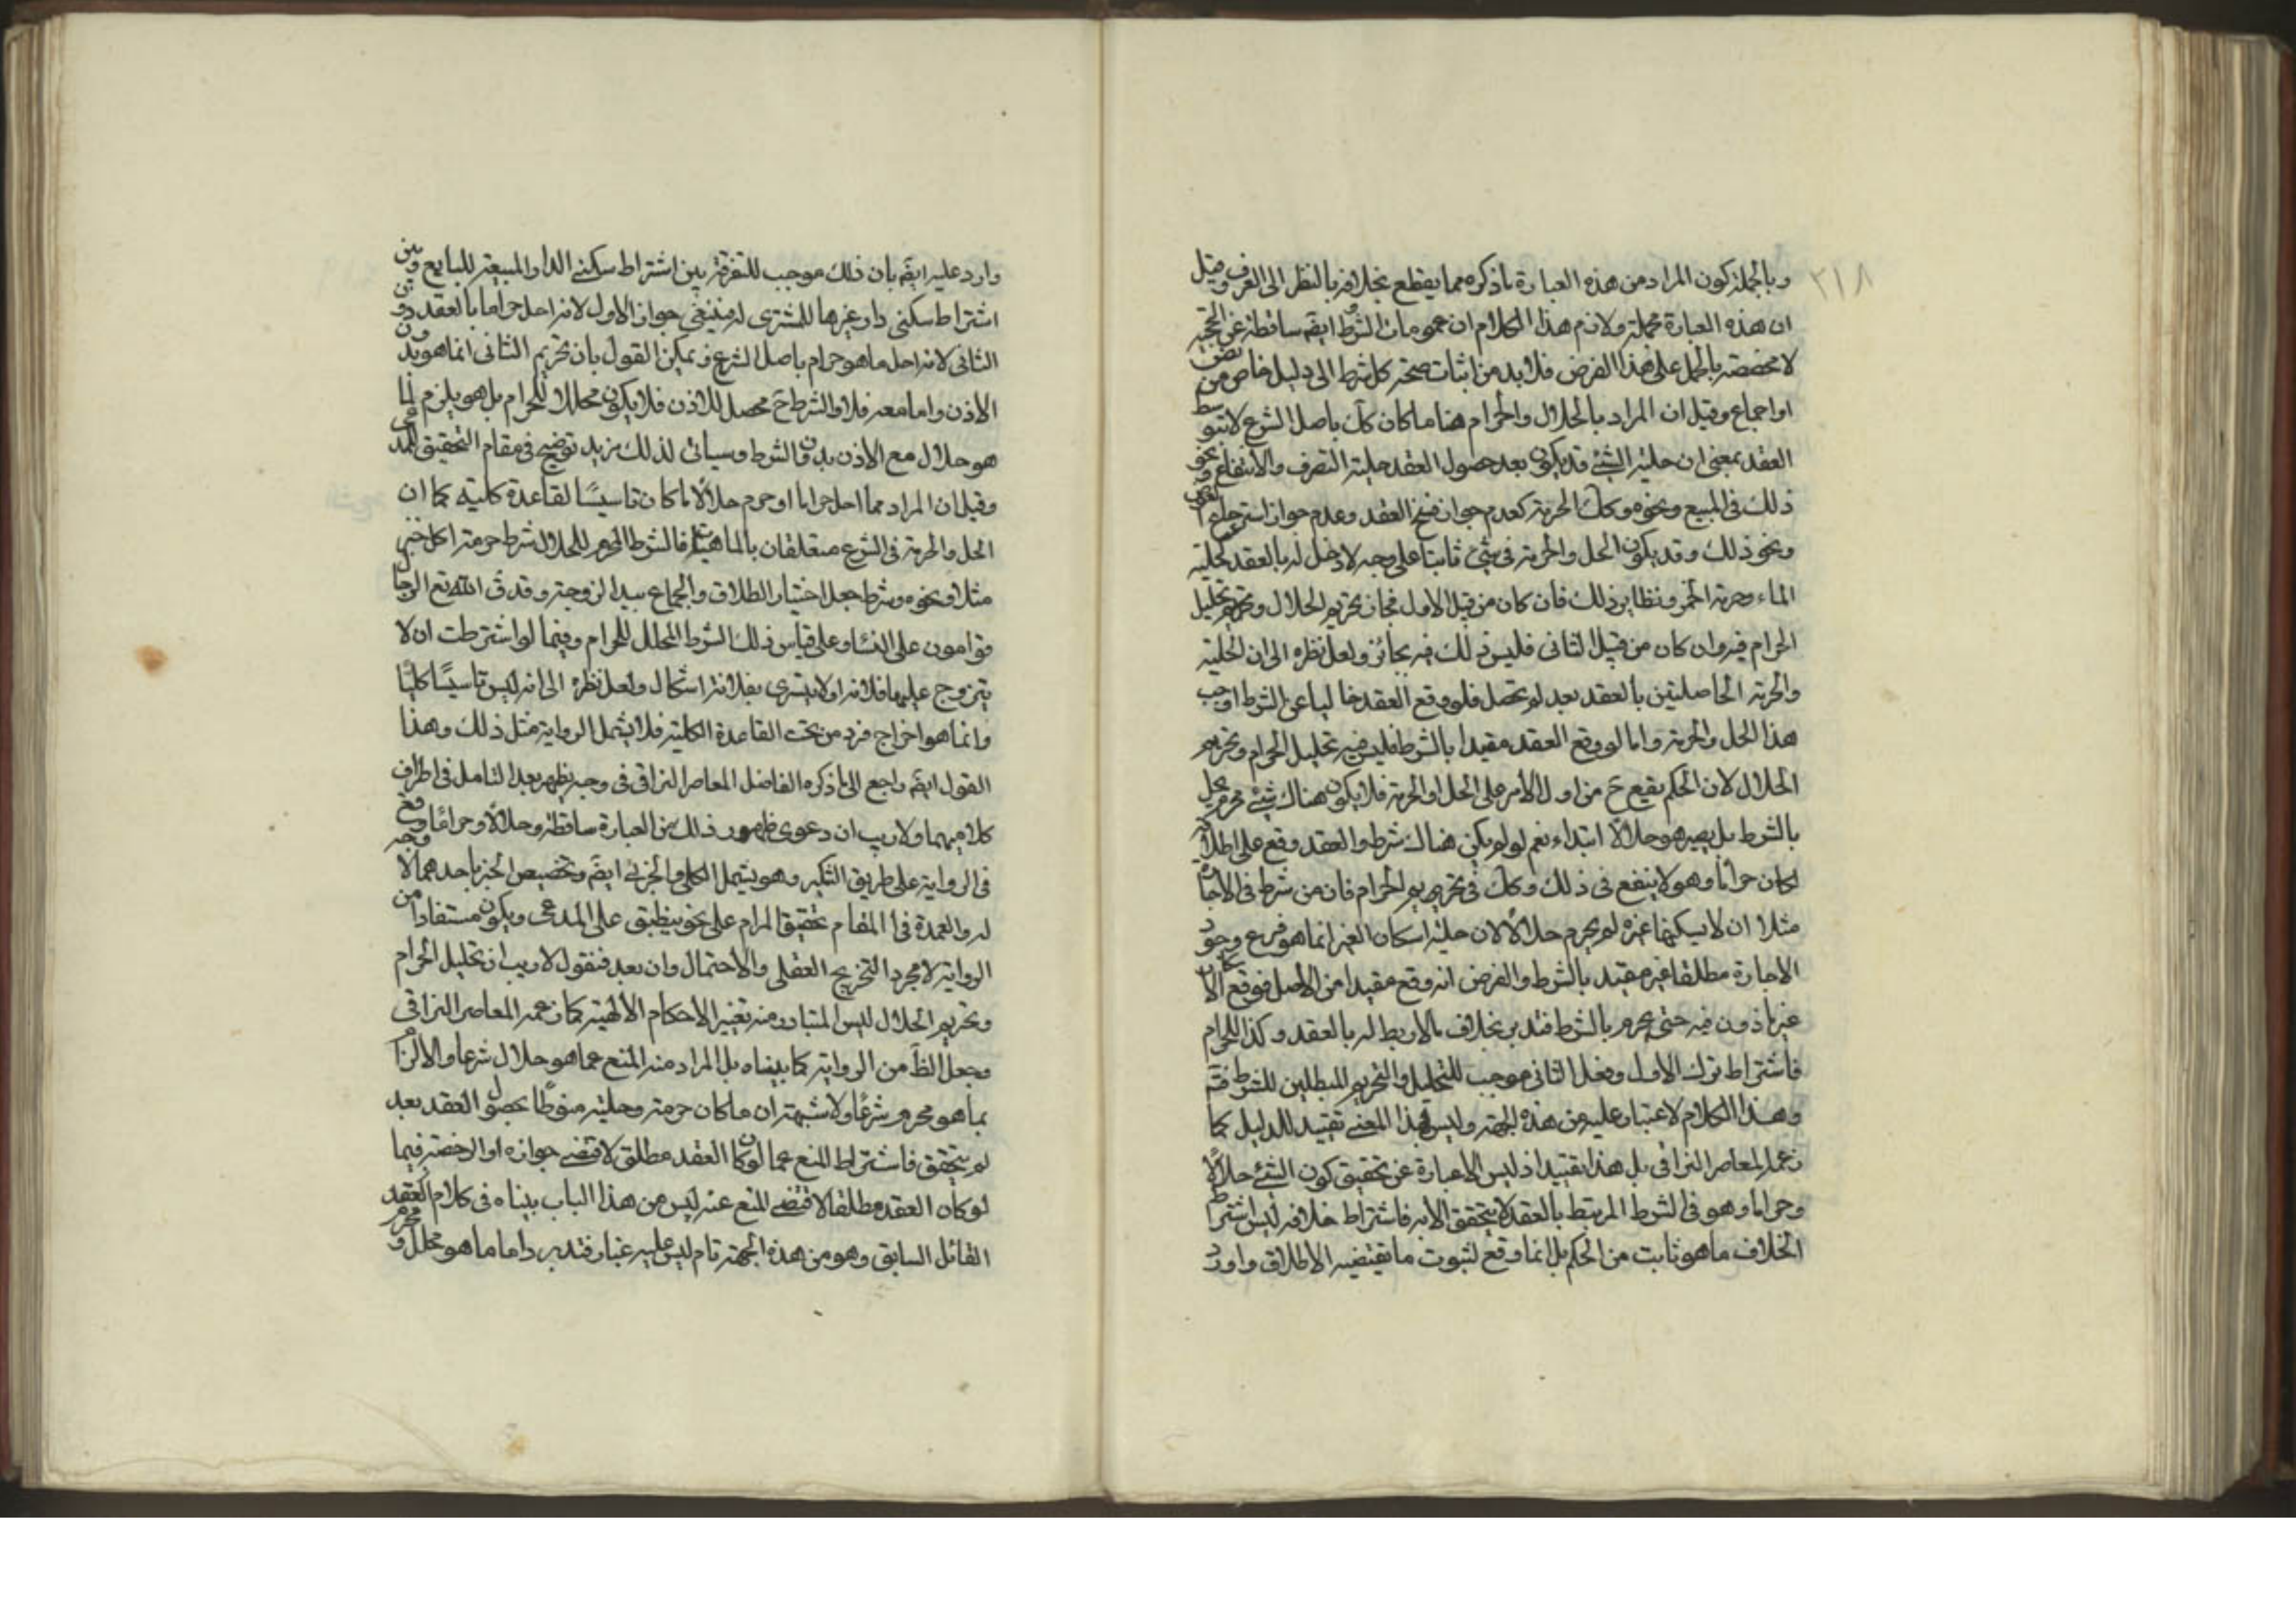 ٢١٨
وبالجملة كون المراد من هذه العبارة ما ذكره مما يقطع بخلافه بالنظر الى العرف وقيل
ان هذه العبارة مجملة ولازم هذا الكلام ان عموم مات الشرط ايضَ ساقطة عن الحجية
لا مخصصة بالمجمل على هذا الفرض فلا بد من اثبات صحة كل شرط الى دليل خاص من نص
او اجماع وقيل ان المراد بالحلال والحرام هنا ما كان كك باصل الشرع لا بتوسط
العقد بمعنى ان حلية الشئ قد يكون بعد حصول العقد حلية التصرف والانتفاع ونحو
ذلك في المبيع ونحوه وكك الحرمة كعدم جواز فسخ العقد وعدم جواز استرجاع
ونحو ذلك وقد يكون الحل والحرمة في شئ ثابتا على وجه لا دخل له بالعقد كحلية
الماء وحرمة الخمر ونظاير ذلك فان كان من قبيل الاول فجاز تحريم الحلال وتحليل
الحرام فيه وان كان من قبيل الثاني فليس ذلك فيه بجائز ولعل نظره الى ان الحلية
والحرمة الحاصلتين بالعقد بعد لم تحصل فلو وقع العقد خاليا عن الشرط اوجب
هذا الحل والحرمة واما لو وقع العقد مقيدا بالشرط فليس فيه تحليل الحرام وتحريم
الحلال لان الحكم يقع ح من اول الامر على الحل او الحرمة فلا يكون هناك شئ محرم يحل
بالشرط بل يصير هو حلالا ابتداء نعم لو لم يكن هناك شرط والعقد وقع على اطلاقه
لكان حراما وهو لا ينفع في ذلك وكك في تحريم الحرام فان من شرط في الاجارة
مثلا ان لا يسكنها غيره لم يحرم حلالا لان حلية اسكان الغير انما هو فرع وجود
الاجارة مطلقا غير مقيد بالشرط والفرض انه وقع مقيدا من الاصل فوقع
غير ماذون فيه حتى يحرم بالشرط فتدبر بخلاف ما لا ربط له بالعقد وكذا الحرام
فاشتراط ترك الاول وفعل الثاني موجب للتحليل والتحريم المبطلين للشرط فتم
وهذا الكلام لا غبار عليه من هذه الجهة وليس بهذا المعنى تقييد للدليل كما
زعمه المعاصر النراقي بل هذا تقييد اذ ليس الا عبارة عن تحقيق كون الشئ حلالا
وحراما وهو في الشرط المرتبط بالعقد لا يتحقق الا به فاشتراط خلافه ليس اشتراط
الخلاف ما هو ثابت من الحكم بل انما وقع لثبوت ما يقتضيه الاطلاق واورد
وارد عليه ايضَ بان ذلك موجب للتفرقة بين اشتراط سكنى الدار المبيعة للبايع وبين
اشتراط سكنى دار غيرها للمشتري لز فينبغي جواز الاول لانه احل حراما بالعقد دون
الثاني لانه احل ما هو حرام باصل الشرع ويمكن القول بان تحريم الثاني انما هو بدون
الاذن واما معه فلا والشرط ح محصل للاذن فلا يكون محللا للحرام بل هو يلزم لما
هو حلال مع الاذن بدون الشرط وسياتي لذلك مزيد توضيح في مقام التحقيق للمدعى
وقيل ان المراد مما احل حراما او حرم حلالا ما كان تاسيسًا لقاعدة كلية كما ان
الحل والحرمة في الشرع متعلقان بالماهيات فالشرط المحرم للحلال شرط حرمة اكل خبز
مثلا ونحوه وشرط جعل اختيار الطلاق والجماع بيد الزوجة وقد ق الله تع الرجال
قوامون على النساء وعلى قياس ذلك الشرط المحلل للحرام وفيما لو اشترطت ان لا
يتزوج عليها فلانة او لا يتسرى بفلانة اشكال ولعل نظره الى انه ليس تاسيسًا كليًا
وانما هو اخراج فرد من تحت القاعدة الكلية فلا يشمل الرواية مثل ذلك وهذا
القول ايضَ راجع الى ما ذكره الفاضل المعاصر النراقي في وجه يظهر بعد التامل في اطراف
كلاميهما ولا ريب ان دعوى ظهور ذلك من العبارة ساقطة وحلالا وحراما وقع
في الرواية على طريق التنكير وهو يشمل الكلي والجزئي ايضَ وتخصيص الخبر باحدهما لا وجه
له والعمدة في المقام تحقيق المرام على نحو ينطبق على المدعى ويكون مستفادا من
الرواية لا مجرد التخريج العقلي والاحتمال وان بعد فنقول لا ريب ان تحليل الحرام
وتحريم الحلال ليس المتبادر منه تغيير الاحكام الالهية كما زعمه المعاصر النراقي
وجعل الظَ من الرواية كما بيناه بل المراد منه المنع عما هو حلال شرعا والالزام
بما هو محرم شرعًا ولا شبهة ان ما كان حرمته وحليته منوطًا بحصول العقد بعد
لم يتحقق فاشتراط المنع عما لو كان العقد مطلق لاقتضى جوازه او الرخصة فيما
لو كان العقد مطلقا لاقتضى المنع عنه ليس من هذا الباب بيناه في كلام
القائل السابق وهو من هذه الجهة تام ليس عليه غبار فتدبر واما ما هو محلل ومحرم